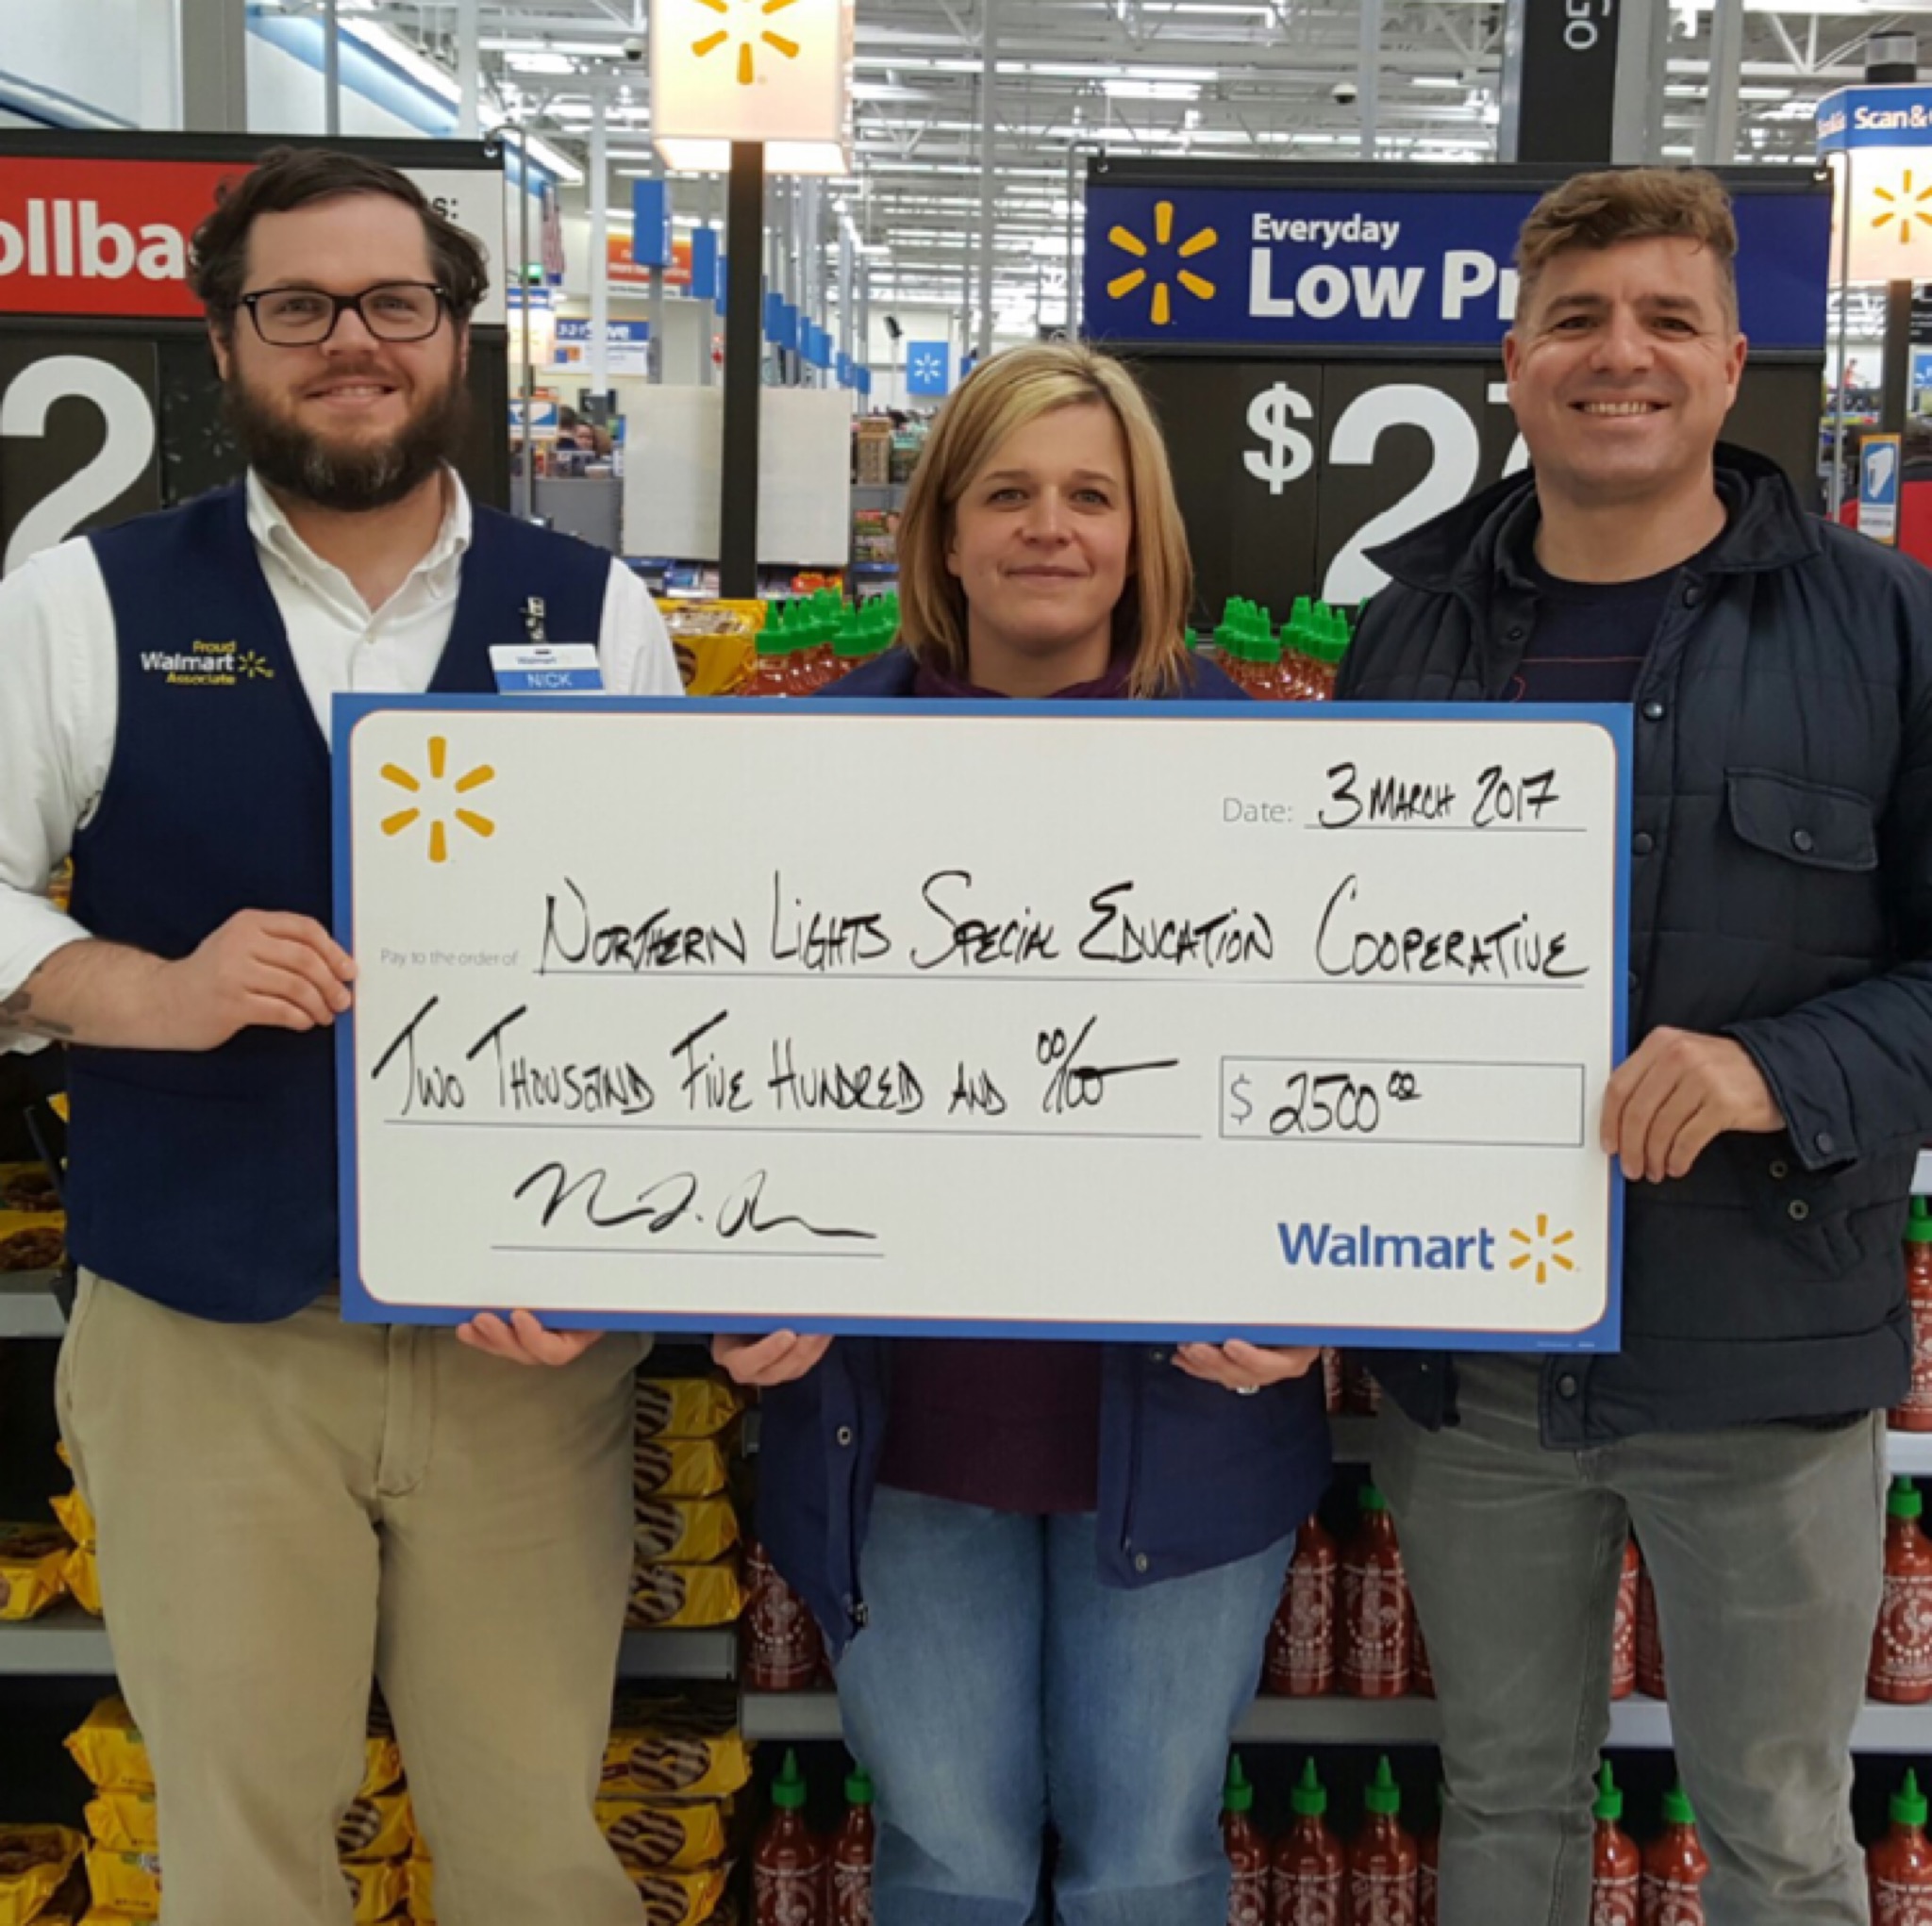 GO
Scan &
ollba
s:
Everyday
Low Pr
2
$2
Proud
Walmart
Associate
Walmart
NICK
Date: 3 MARCH 2017
Pay to the order of: NORTHERN LIGHTS SPECIAL EDUCATION COOPERATIVE
TWO THOUSAND FIVE HUNDRED AND 00/100
$ 2500 00
Walmart